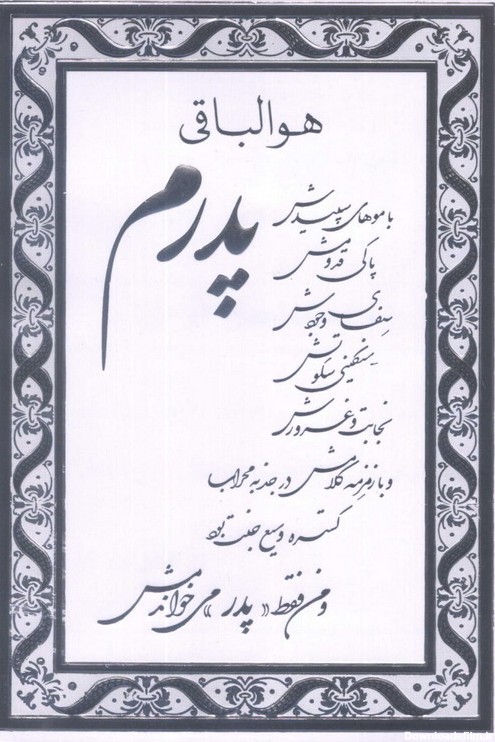 هوالباقی
پدرم
با موهای سپیدش
پاکی قدومش
صفای وجودش
سنگینی سکوتش
نجابت و غرورش
و با زمزمه کلامش در جذبه محراب
گستره وسیع جنت بود
و من فقط « پدر » می خواندمش